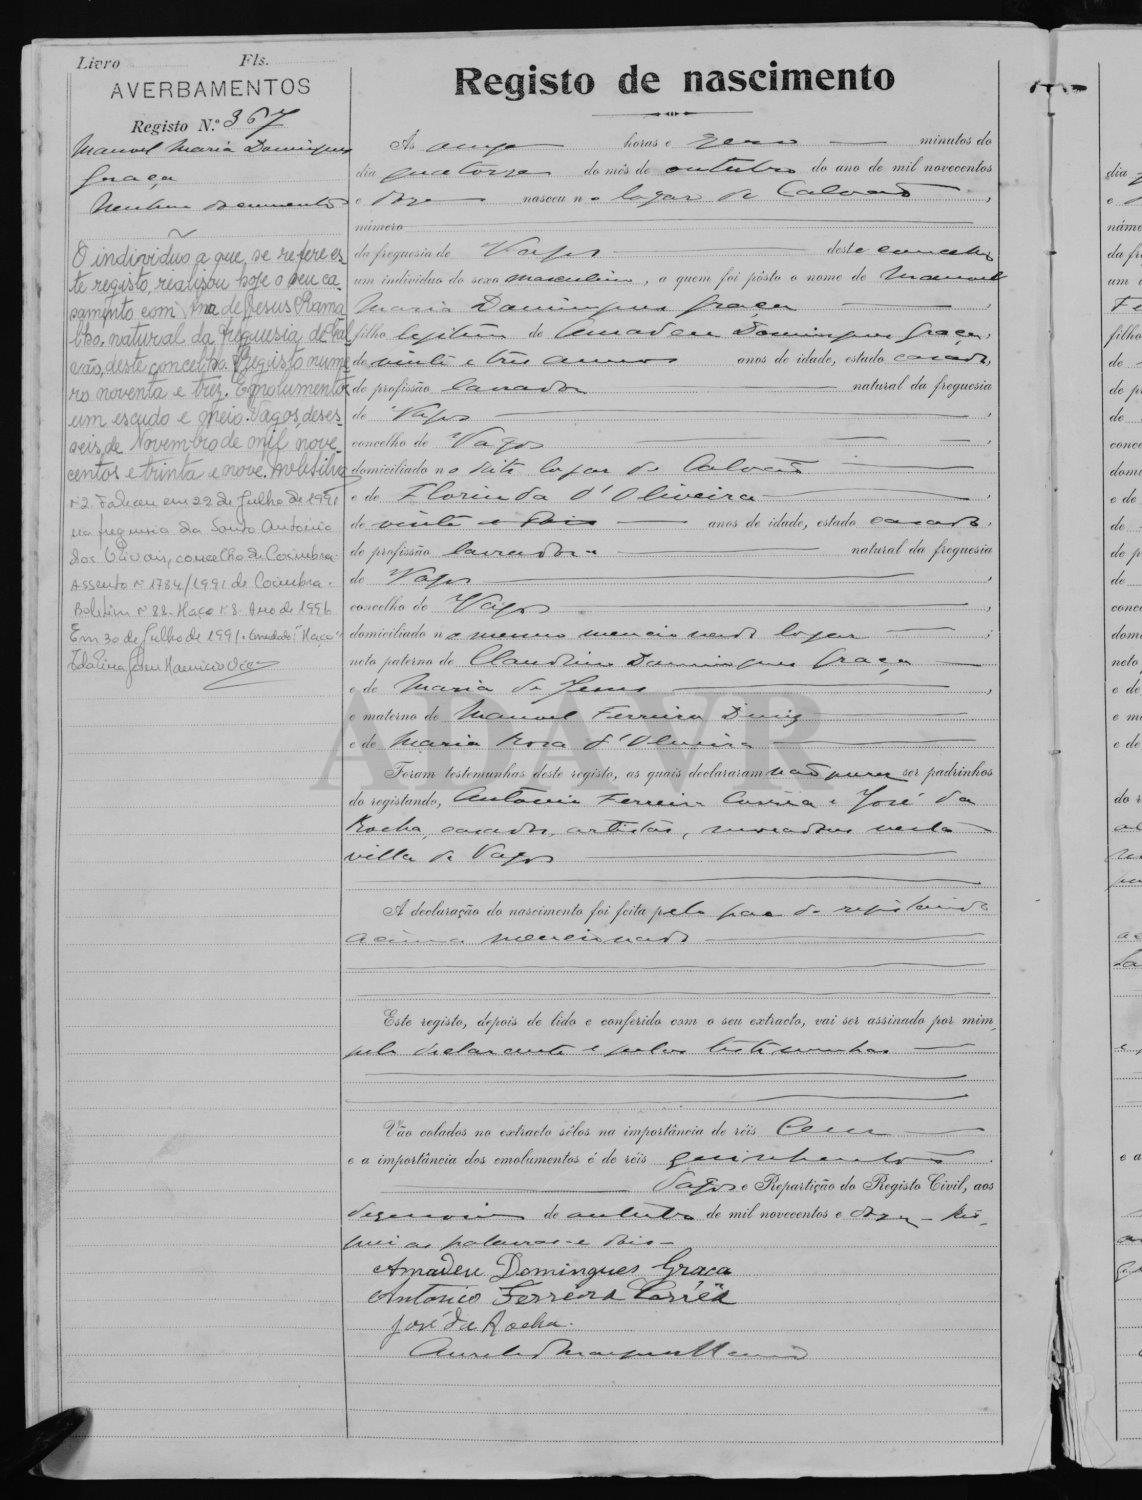 Livro Fls.
AVERBAMENTOS
Registo N.º 367
Manuel Maria Domingues
Graça
Nenhum documento
O individuo a que se refere es-
te registo, realisou hoje o seu ca-
samento com Ana de Jesus Rama
lho, natural da freguesia de Cal
vão, deste concelho. Registo nume
ro noventa e trez. Emolumentos
um escudo e meio. Vagos, deses-
seis de Novembro de mil nove-
centos e trinta e nove.
Nº 2. Faleceu em 22 de Julho de 1991
na freguesia de Santo Antonio
dos Olivais, concelho de Coimbra.
Assento nº 1784/1991 de Coimbra.
Boletim nº 88. Maço nº 8. Ano de 1991
Em 30 de Julho de 1991. Emendado: "Maço".
Registo de nascimento
Ás onze horas e zero minutos do
dia quatorze do mês de outubro do ano de mil novecentos
e doze nasceu no lugar de Calvão,
número
da freguesia de Vagos deste concelho
um indivíduo do sexo masculino, a quem foi pôsto o nome de Manuel
Maria Domingues Graça
filho legitimo de Amadeu Domingues Graça,
de vinte e três annos anos de idade, estado casado,
de profissão lavrador natural da freguesia
de Vagos,
concelho de Vagos,
domiciliado no dito lugar de Calvão
e de Florinda d'Oliveira,
de vinte e dois anos de idade, estado casada,
de profissão lavradora natural da freguesia
de Vagos,
concelho de Vagos,
domiciliado no mesmo mencionado lugar;
neto paterno de Claudino Domingues Graça
e de Maria de Jesus,
e materno de Manuel Ferreira Diniz
e de Maria Rosa d'Oliveira
Foram testemunhas deste registo, as quais declararam não querer ser padrinhos
do registando, Antonio Ferreira Corrêa e José da
Rocha, casados, artistas, moradores nesta
villa de Vagos
A declaração do nascimento foi feita pelo pae do registando
acima mencionado
Este registo, depois de lido e conferido com o seu extracto, vai ser assinado por mim,
pelo declarante e pelas testemunhas
Vão colados no extracto sêlos na importância de réis Cem
e a importância dos emolumentos é de réis quinhentos.
Vagos e Repartição do Registo Civil, aos
dezenove de outubro de mil novecentos e doze - Ris-
quei as palavras - e dois -
Amadeu Domingues Graça
Antonio Ferreira Corrêa
José da Rocha.
ADAVR